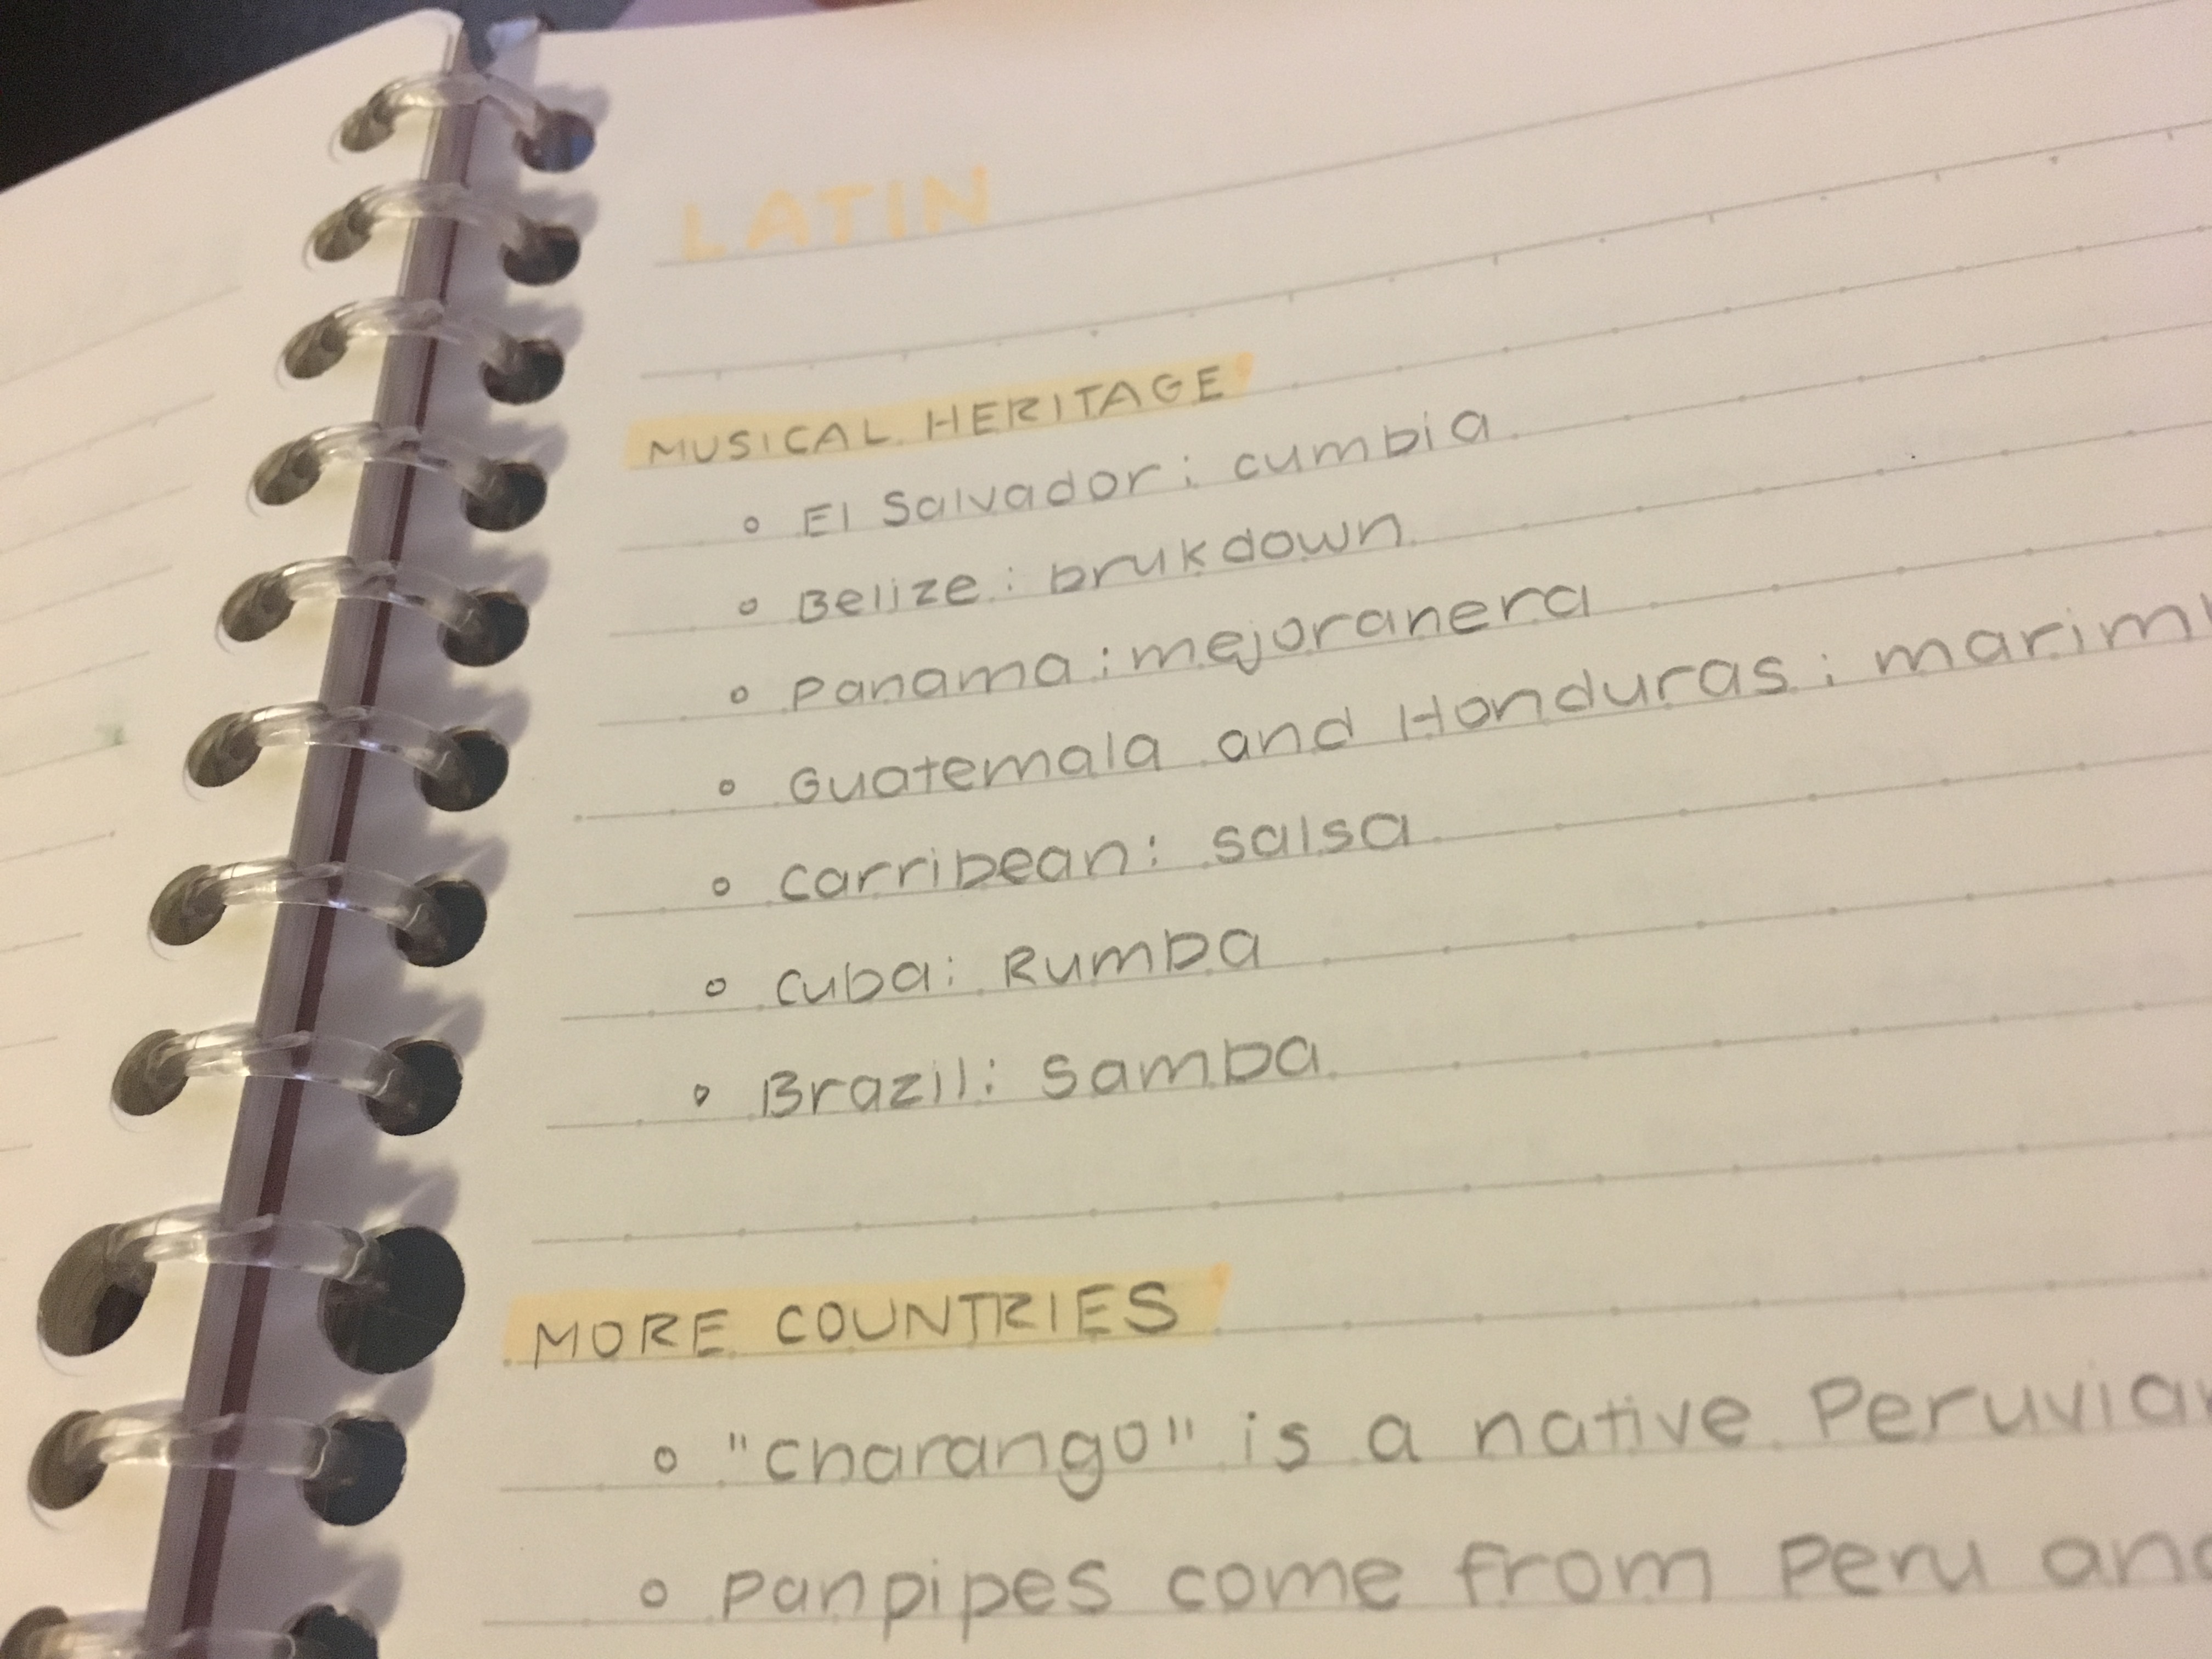 LATIN
MUSICAL HERITAGE
° El Salvador: cumbia
° Belize: brukdown
° Panama: mejoranera
° Guatemala and Honduras: marim
° Carribean: salsa
° Cuba: Rumba
° Brazil: Samba
MORE COUNTRIES
° "charango" is a native Peruvian
° panpipes come from Peru and